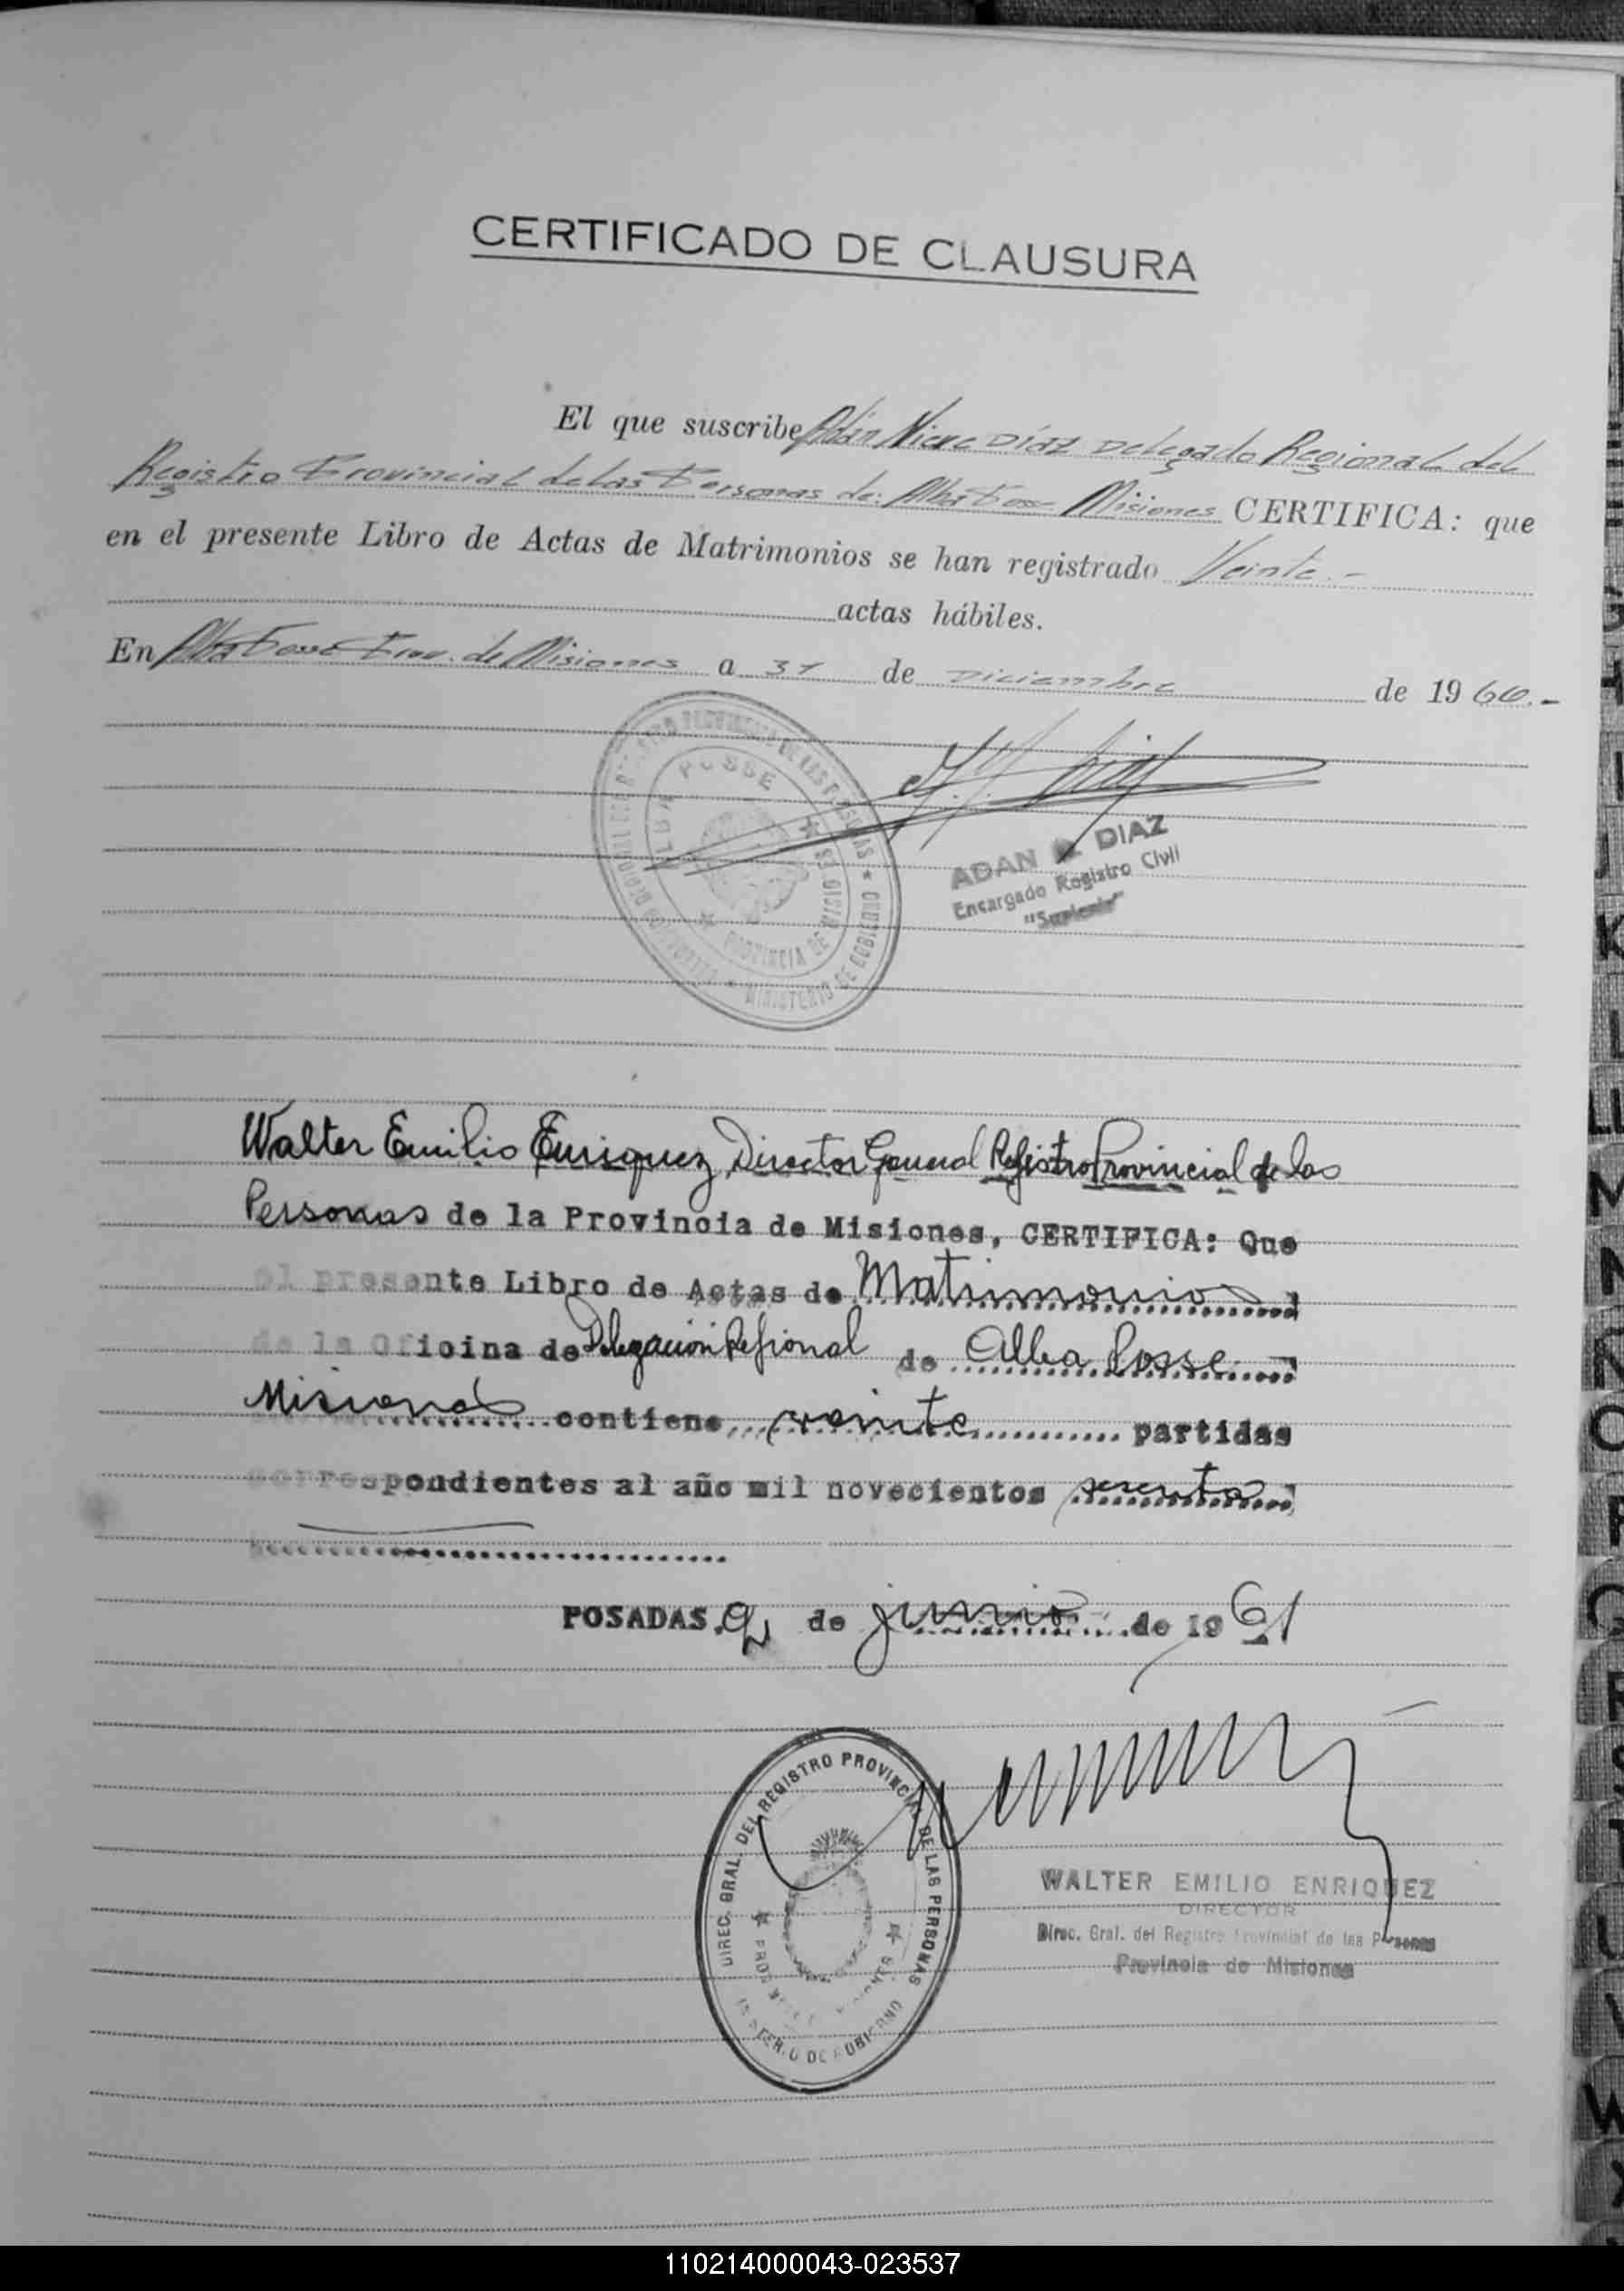 CERTIFICADO DE CLAUSURA
El que suscribe Adán Díaz Delegado Regional del
Registro Provincial de las Personas de: Alba Posse Misiones CERTIFICA: que
en el presente Libro de Actas de Matrimonios se han registrado Veinte.-
actas hábiles.
En Alba Posse Prov. de Misiones a 31 de Diciembre de 1960.-
POSSE
PROVINCIA DE
MINISTERIO DE GOBIERNO
ADAN DIAZ
Encargado Registro Civil
"Suplente"
Walter Emilio Enriquez, Director General Registro Provincial de las
Personas de la Provincia de Misiones, CERTIFICA: Que
el presente Libro de Actas de Matrimonios
de la Oficina de Delegación Regional de Alba Posse
Misiones contiene veinte partidas
correspondientes al año mil novecientos sesenta
POSADAS, de junio de 1961
DIREC. GRAL. DEL REGISTRO PROVINCIAL DE LAS PERSONAS
WALTER EMILIO ENRIQUEZ
DIRECTOR
Direc. Gral. del Registro Provincial de las Personas
Provincia de Misiones
A
I
J
K
L
LL
M
N
Ñ
O
P
Q
R
S
T
U
V
W
X
110214000043-023537